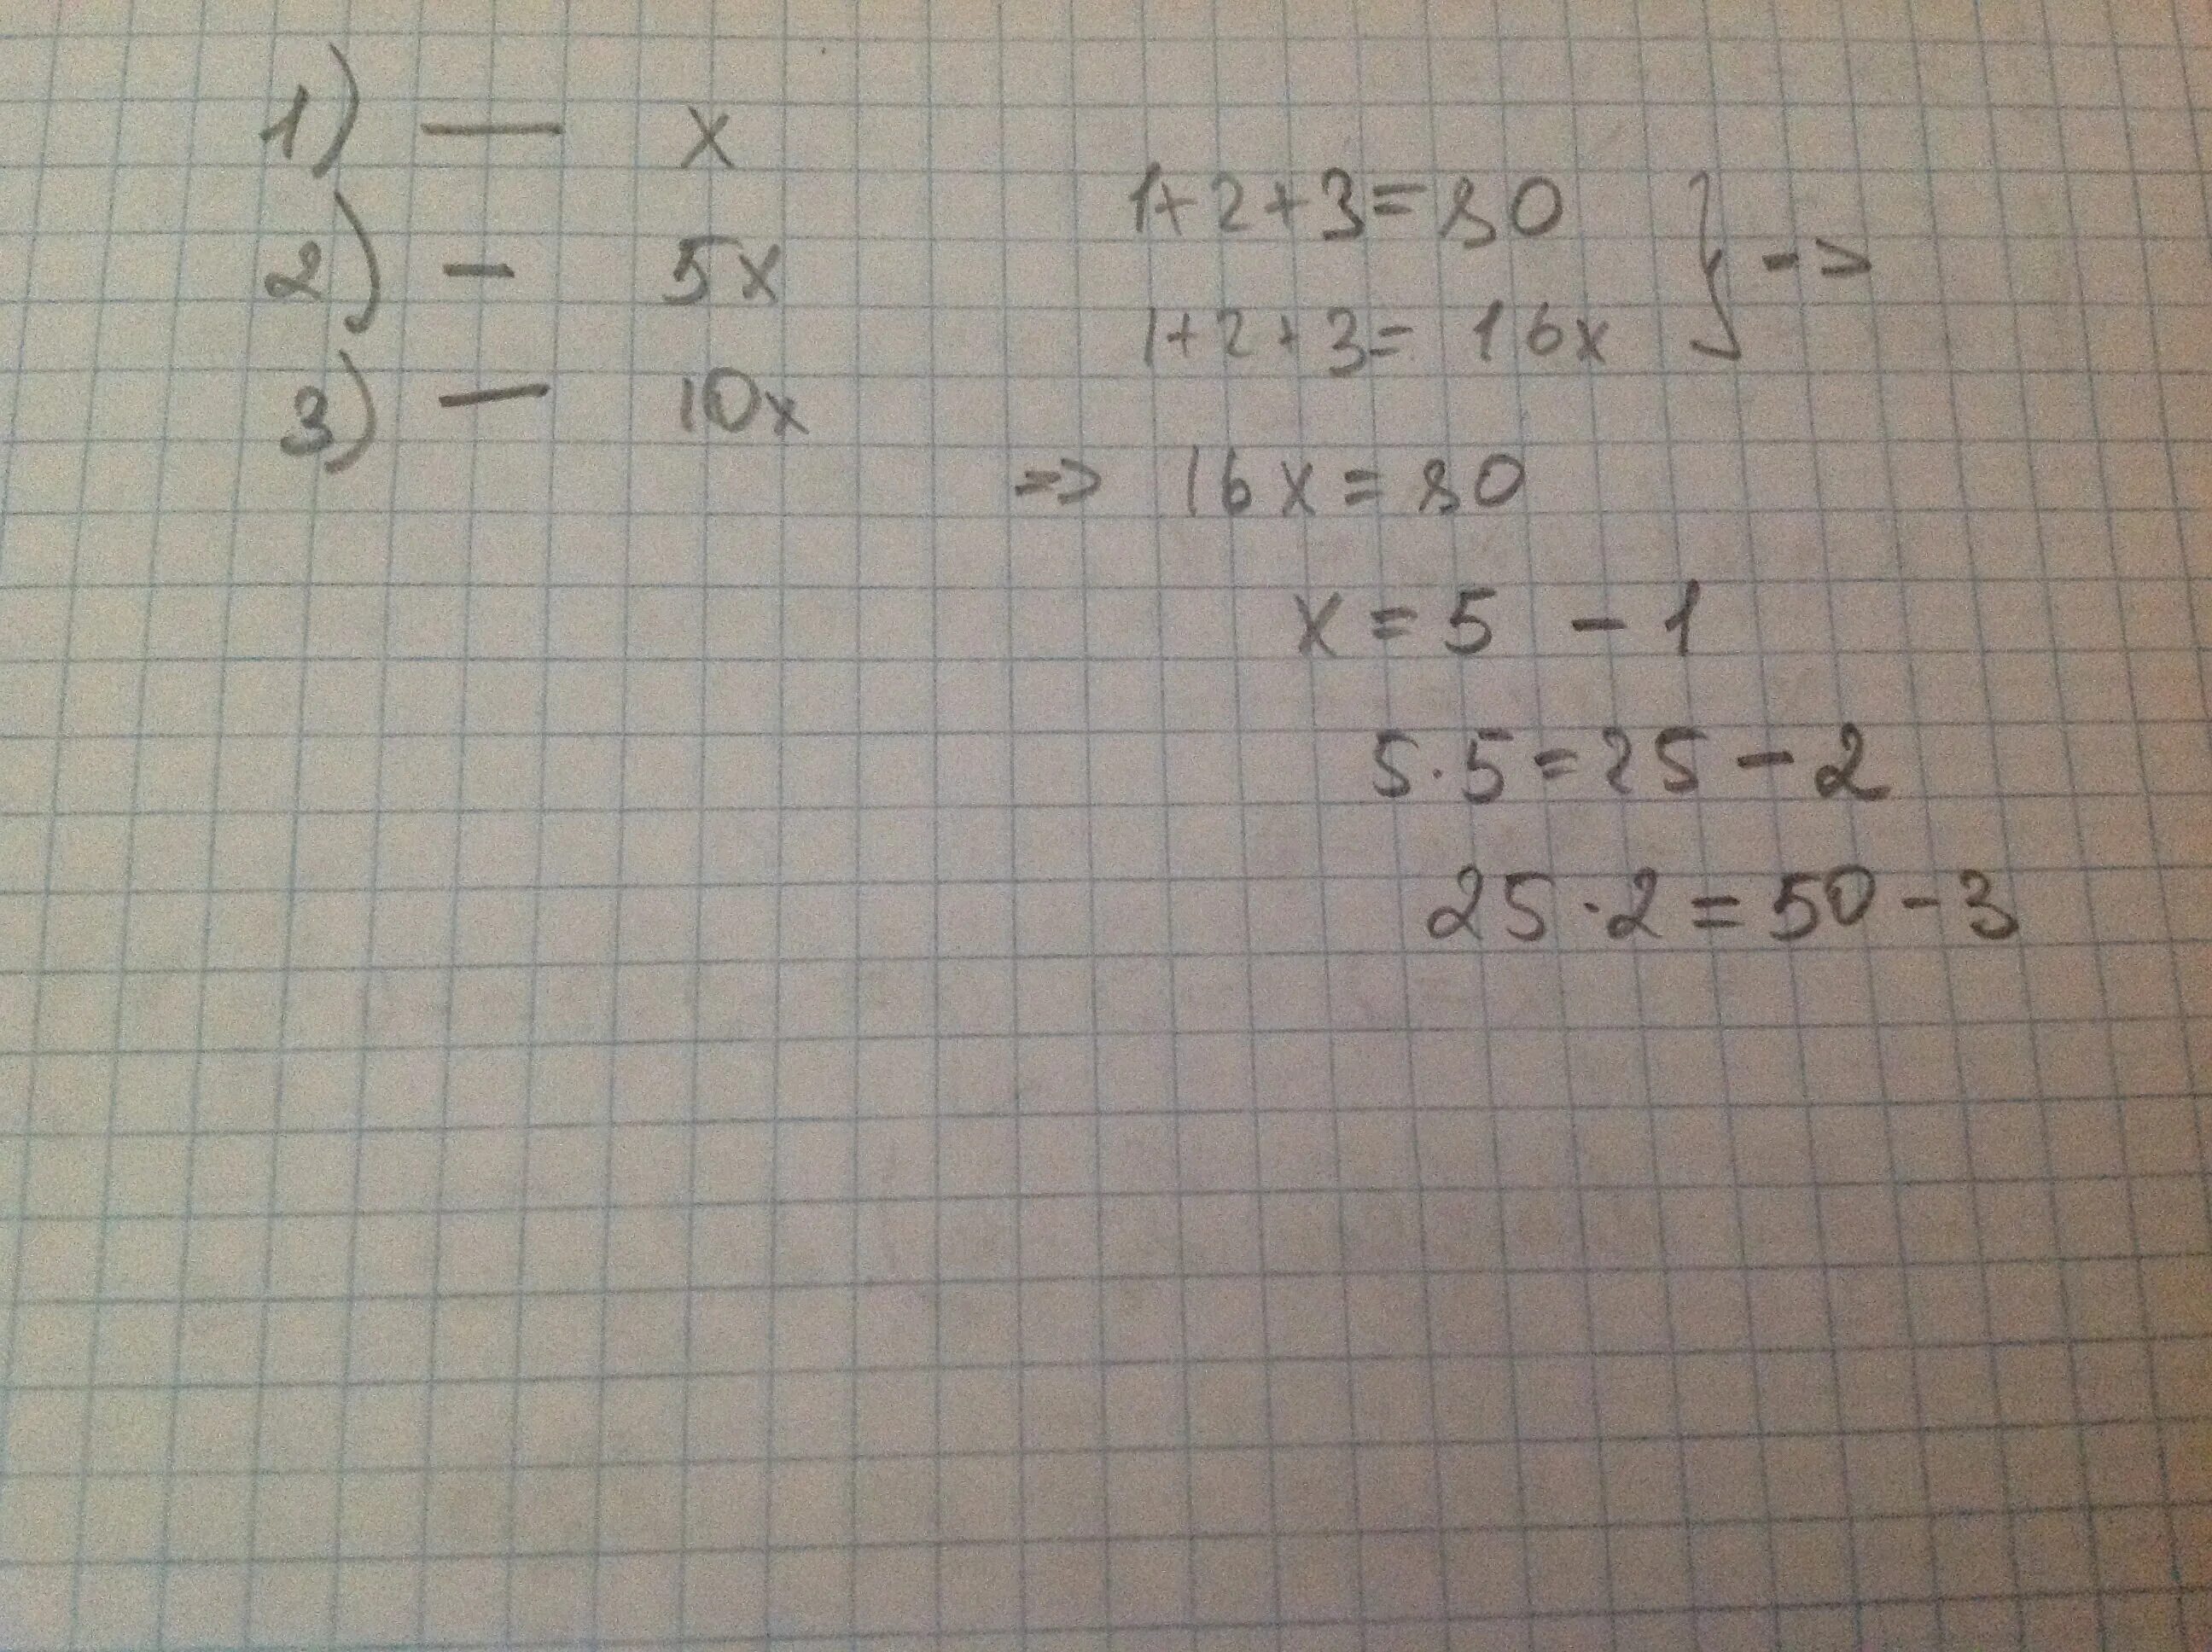 1) — x
2) — 5x
3) — 10x
1+2+3=80
1+2+3= 16x } =>
=> 16x=80
x=5 - 1
5·5=25-2
25·2=50-3